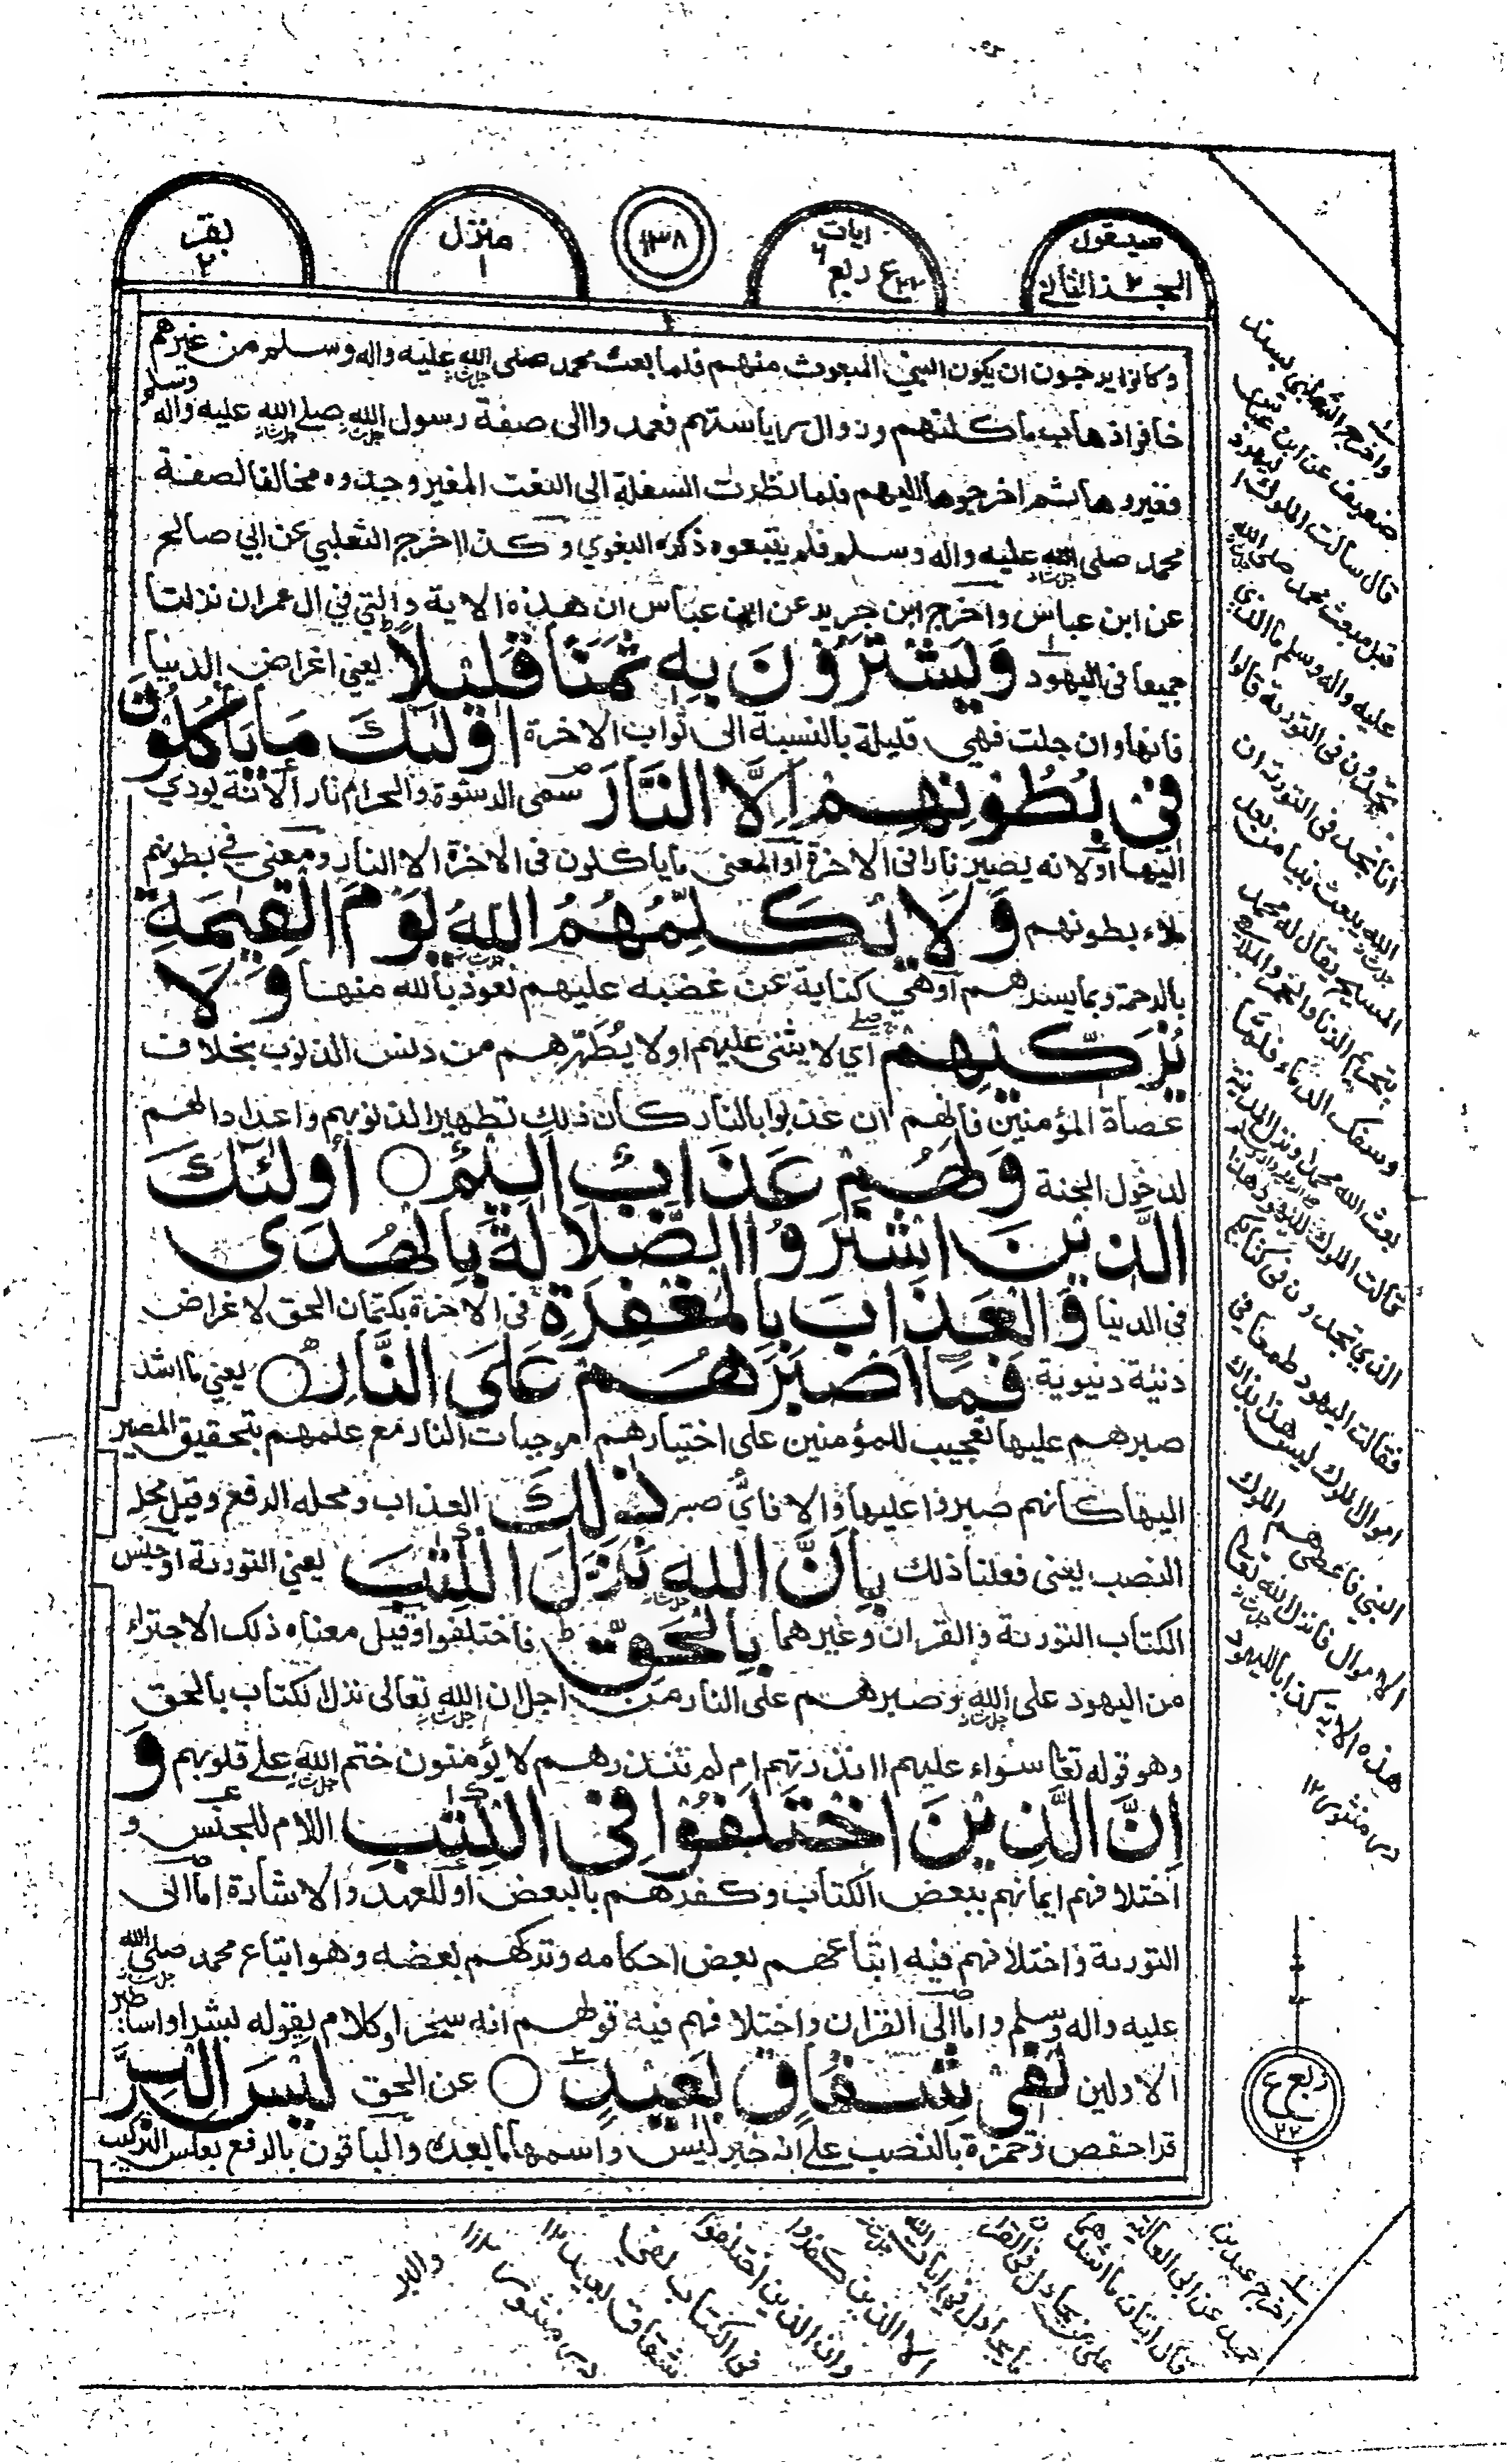 سيقول
٢
الجزء الثاني
ايات
٦
ع ربع
٢٢
١٣٨
منزل
١
بقر
٢
وكانوا يرجون ان يكون النبي المبعوث منهم فلما بعث محمد صلى الله عليه واله وسلم من غيرهم
خافوا ذهاب ماكلتهم وزوال رياستهم فعمدوا الى صفة رسول الله صلى الله عليه واله وسلم
فغيروها ثم اخرجوها اليهم فلما نظرت السفلة الى النعت المغير وجدوه مخالفا لصفة
محمد صلى الله عليه واله وسلم فلم يتبعوه ذكره البغوي وكذا اخرج الثعلبي عن ابي صالح
عن ابن عباس واخرج ابن جرير عن ابن عباس ان هذه الاية والتي في ال عمران نزلتا
جميعا في اليهود وَيَشْتَرُوْنَ بِهٖ ثَمَنًا قَلِيْلًا يعني اغراض الدنيا
فانها وان جلت فهي قليلة بالنسبة الى ثواب الاخرة اُولٰٓئِكَ مَا يَأْكُلُوْنَ
فِيْ بُطُوْنِهِمْ اِلَّا النَّارَ سمى الرشوة والحرام نارا لانه يودي
اليها اولانه يصير نارا في الاخرة او المعنى ما ياكلون في الاخرة الا النار ومعنى في بطونهم
ملاء بطونهم وَلَا يُكَلِّمُهُمُ اللهُ يَوْمَ الْقِيٰمَةِ
بالرحمة وبما يسرهم اوهي كناية عن غضبه عليهم نعوذ بالله منها وَلَا
يُزَكِّيْهِمْ اي لا يثني عليهم اولا يُطَهِّرهم من دنس الذنوب بخلاف
عصاة المؤمنين فانهم ان عذبوا بالنار كان ذلك تطهيرا لذنوبهم واعدادا لهم
لدخول الجنة وَلَهُمْ عَذَابٌ اَلِيْمٌ ○ اُولٰٓئِكَ
الَّذِيْنَ اشْتَرَوُا الضَّلَالَةَ بِالْهُدٰى
في الدنيا وَالْعَذَابَ بِالْمَغْفِرَةِ في الاخرة بكتمان الحق لاغراض
دنية دنيوية فَمَا اَصْبَرَهُمْ عَلَى النَّارِ ○ يعني ما اشد
صبرهم عليها تعجيب للمؤمنين على اختيارهم موجبات النار مع علمهم بتحقيق المصير
اليها كانهم صبروا عليها والا فايُّ صبر ذٰلِكَ العذاب ومحله الرفع وقيل محله
النصب يعني فعلنا ذلك بِاَنَّ اللهَ نَزَّلَ الْكِتٰبَ يعني التورىة او جنس
الكتاب التورىة والقران وغيرهما بِالْحَقِّ فاختلفوا وقيل معناه ذلك الاجتراء
من اليهود على الله وصبرهم على النار من اجل ان الله تعالى نزل لكتاب بالحق
وهو قوله تعا سواء عليهم اانذرتهم ام لم تنذرهم لا يؤمنون ختم الله على قلوبهم وَ
اِنَّ الَّذِيْنَ اخْتَلَفُوْا فِى الْكِتٰبِ اللام للجنس و
اختلافهم ايمانهم ببعض الكتاب وكفرهم بالبعض او للعهد والاشارة اما الى
التورىة واختلافهم فيه اتباعهم بعض احكامه وتركهم بعضه وهو اتباع محمد صلى الله
عليه واله وسلم واما الى القران واختلافهم فيه قولهم انه سحر او كلام يقوله بشر او اساطير
الاولين لَفِيْ شِقَاقٍ بَعِيْدٍ ○ عن الحق لَيْسَ الْبِرَّ
قرا حفص وحمزة بالنصب على انه خبر ليس واسمها ما بعده والباقون بالرفع بعكس التركيب
واخرج الثعلبي بسند
ضعيف عن ابن عباس
قال سالت الملوك اليهود
قبل مبعث محمد صلى الله
عليه واله وسلم ما الذي
تجدون في التورىة قالوا
انا نجد في التورىة ان
الله يبعث نبيا من بعد
المسيح يقال له محمد
بتحريم الزنا والخمر والملاهي
وسفك الدماء فلما
بعث الله محمدا ونزل المدينة
قالت الملوك لليهود هذا
الذي تجدون في كتابكم
فقالت اليهود طمعا في
اموال الملوك ليس هذا بذاك
النبي فاعطاهم الملوك
الاموال فانزل الله تعالى
هذه الاية كذابا لليهود
در منثور ١٢
ربع
ع
٢٢
اخرج عبد بن
حميد عن ابى العالية
قال ايتان ما اشدهما
على من يجادل في القران
ما يجادل في ايات الله
الا الذين كفروا
وان الذين اختلفوا
في الكتاب لفي
شقاق بعيد
در منثور